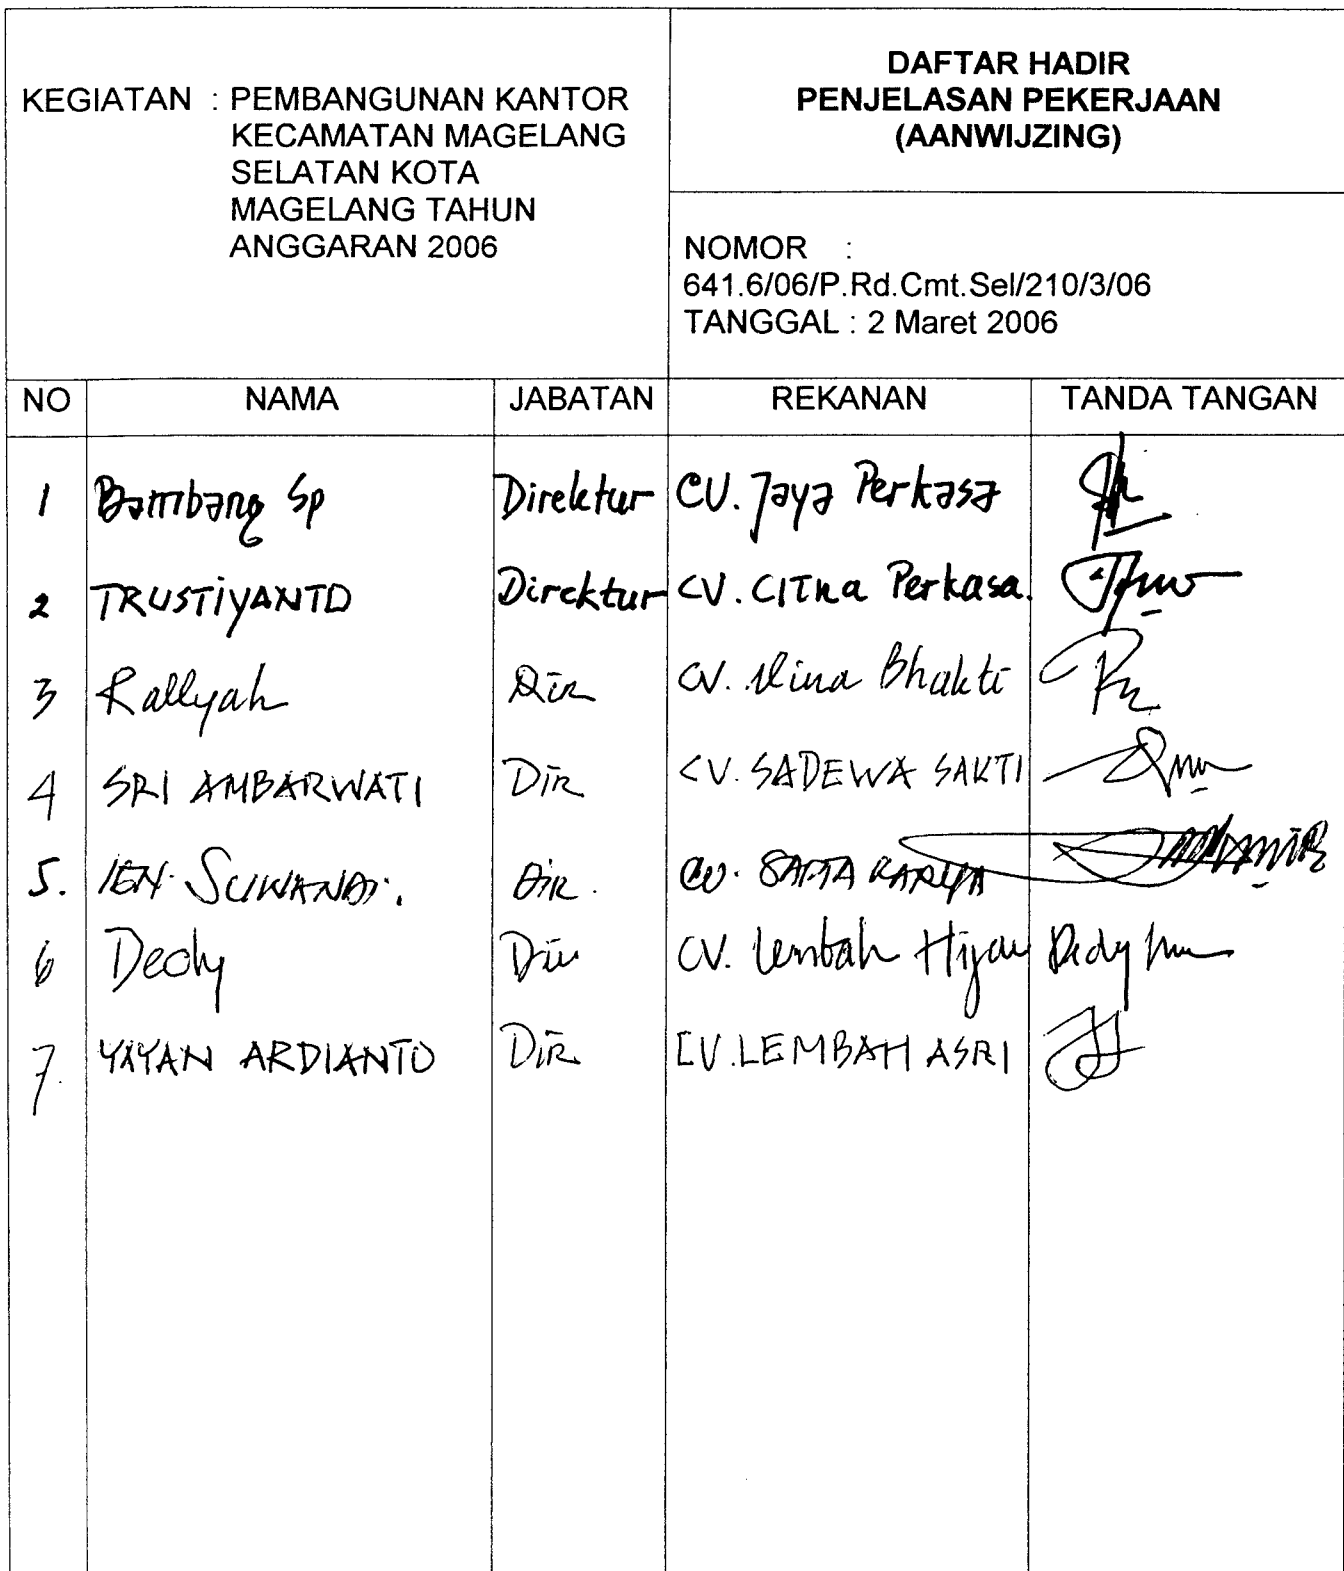 KEGIATAN : PEMBANGUNAN KANTOR
KECAMATAN MAGELANG
SELATAN KOTA
MAGELANG TAHUN
ANGGARAN 2006
DAFTAR HADIR
PENJELASAN PEKERJAAN
(AANWIJZING)
NOMOR :
641.6/06/P.Rd.Cmt.Sel/210/3/06
TANGGAL : 2 Maret 2006
NO NAMA JABATAN REKANAN TANDA TANGAN
1 Bambang Sp Direktur CV. Jaya Perkasa
2 TRUSTIYANTO Direktur CV. CITRa Perkasa.
3 Rallyah Dir CV. Bhakti
4 SRI AMBARWATI Dir CV. SADEWA SAKTI
5. SUWANDI. Dir. CV. KARYA
6 Dedy Dir CV. Lembah Hijau Dedy
7. YAYAN ARDIANTO Dir CV. LEMBAH ASRI